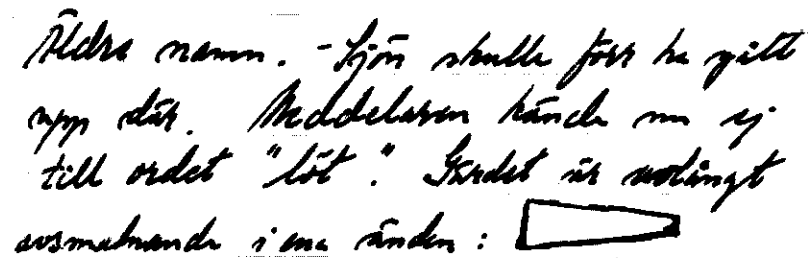 Äldre namn. - Sjön skulle förr ha gått
upp där. Meddelaren kände nu ej
till ordet "löt". Gärdet är avlångt
avsmalnande i ena änden: